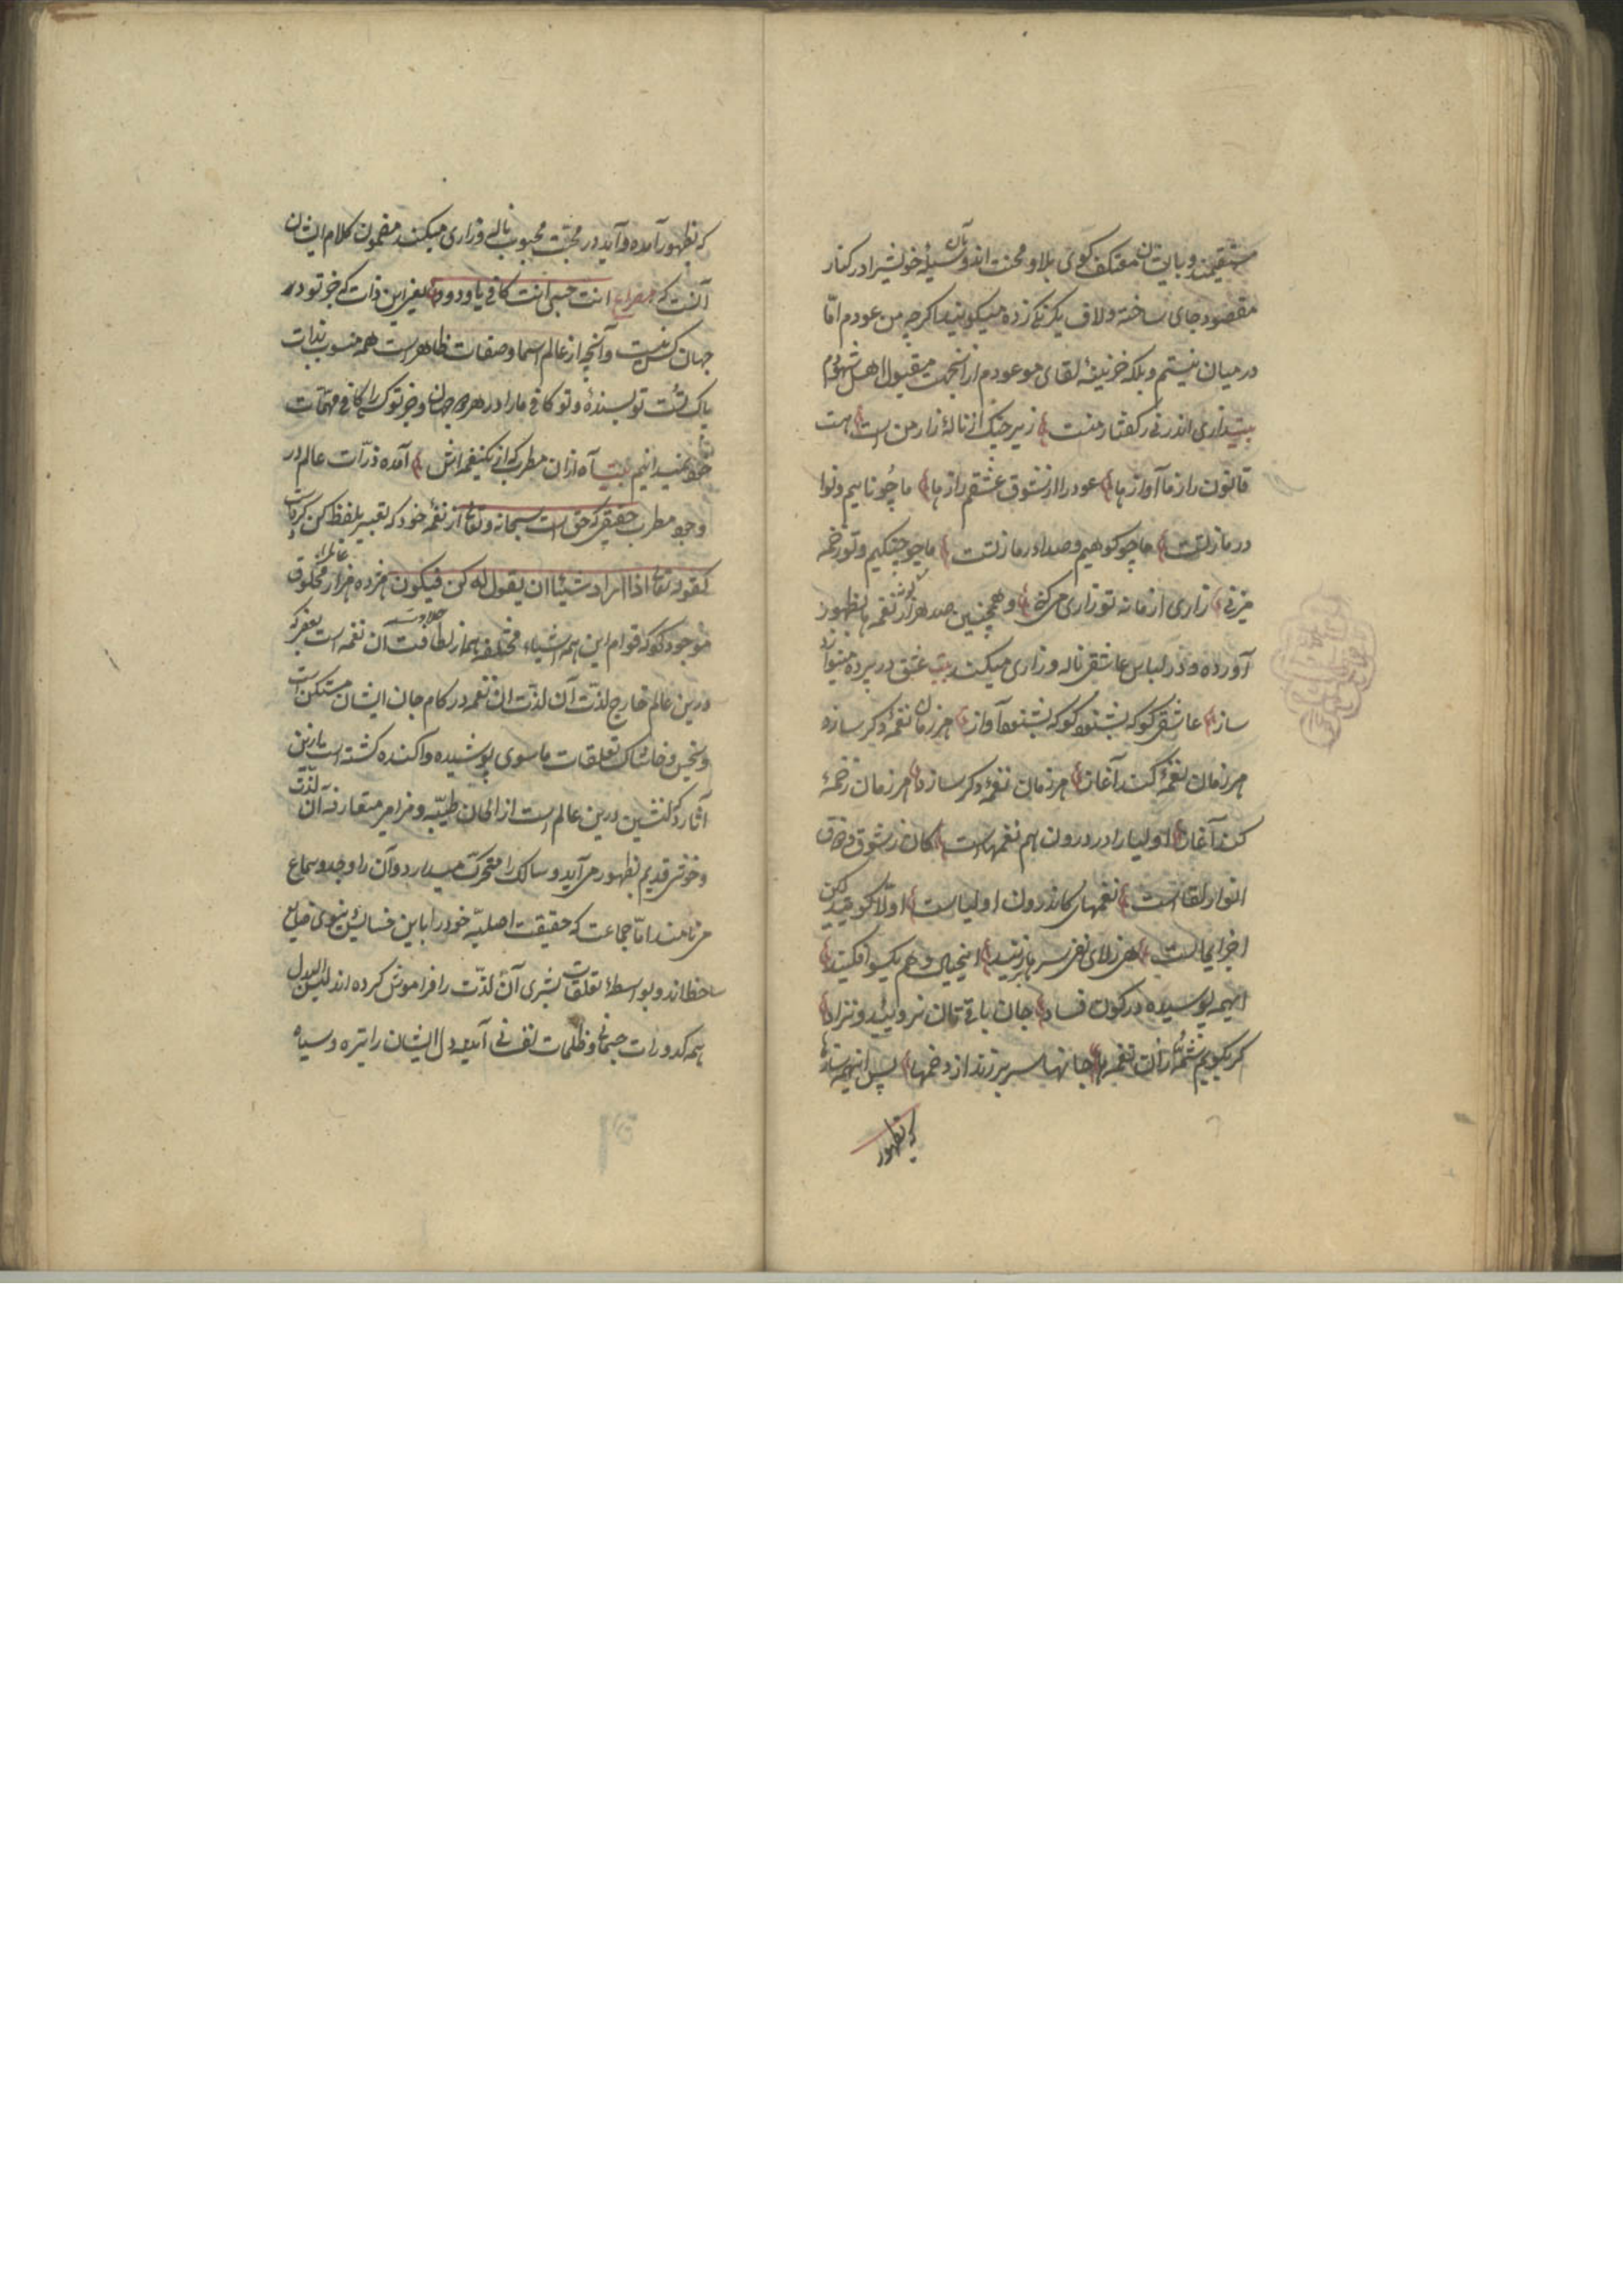 مستقیمند و با ایشان معتکف کوی بلا و محنت اند و بآن وسیله خویش را در کنار
مقصود جای ساخته و لاف یکرنکی زده میکویند اکرچه من عودم اما
در میان نیستم و بلکه خزینهٔ لقای موعودم از انجهت مقبول اهل شهودم
بیت زاری اندر نی ز کفتار منست زیر چنک از نالهٔ زار من است هست
قانون راز ما آوازها عود را از شوق عشقم رازها ما چو ناییم و نوا
در ما ز تست ما چو کوهیم و صدا در ما ز تست ما چو چنکیم و تو زخمه
میزنی زاری از ما نه تو زاری میکنی و همچنین صد هزار نغمه بظهور
آورده و در لباس عاشقی ناله و زاری میکند بیت عشق در پرده مینوازد
ساز عاشقی کو که بشنود آواز هر زمان نغمهٔ دکر سازد
هر زمان نغمهٔ کند آغاز هر زمان نغمهٔ دکر سازد هر زمان زخمهٔ
کند آغاز اولیا را در درون هم نغمهاست کان ز شوق و ذوق
انوار لقاست نغمهای کاندرون اولیاست اولا کوید که
اجزای لاست هین ز لای نفی سرها بر زنید این خیال و وهم یکسو افکنید
ای همه پوسیده در کون فساد جان باقی تان نرویید و نزاد
کر بکویم شمهٔ زان نغمها جانها سر بر زند از دخمها پس اینهمه سازها
که بظهور
که بظهور آمده و آید در محبت محبوب ناله و زاری میکنند مضمون کلام ایشان
آنست که مصراع انت حسبی انت کافی یا ودود یعنی این ذات که جز تو در
جهان کس نیست و آنچه از عالم اسما و صفات ظاهر است همه منسوب بذات
پاک تست تو بسندهٔ و تو کافی ما را در هر دو جهان و جز تو کس را کافی مهمات
خود نمیدانیم بیت آه ازان مطرب که از یک نغمه اش آمده ذرات عالم در
وجود مطرب حقیقی که حق است سبحانه و تعالی از نغمهٔ خود که تعبیر بلفظ کن کرده است
کقوله تعالی اذا اراد شیئا ان یقول له کن فیکون هژده هزار عالم را مخلوق
موجود کو که قوام این همه اشیاء مختلفه هم از لطافت و حلاوت آن نغمه است یعنی که
درین عالم خارج لذت آن لذت آن نغمه در کام جان ایشان متمکن است
و بخس و خاشاک تعلقات ماسوی پوشیده و آکنده کشته است مازین
آثار دلنشین درین عالم است از الحان طیبه و مزامیر متعارفه آن لذت
و خوشی قدیم بظهور می آید و سالک را متحرک میسازد و آن را وجد و سماع
می نامند اما جماعت که حقیقت اصلیه خود را باین خسایس دنیوی ضایع
ساخته اند و بواسطهٔ تعلقات بشری آن لذت را فراموش کرده اند
بهمه کدورات جسمانی و ظلمات نفسانی آمده دل ایشان را تیره و سیاه